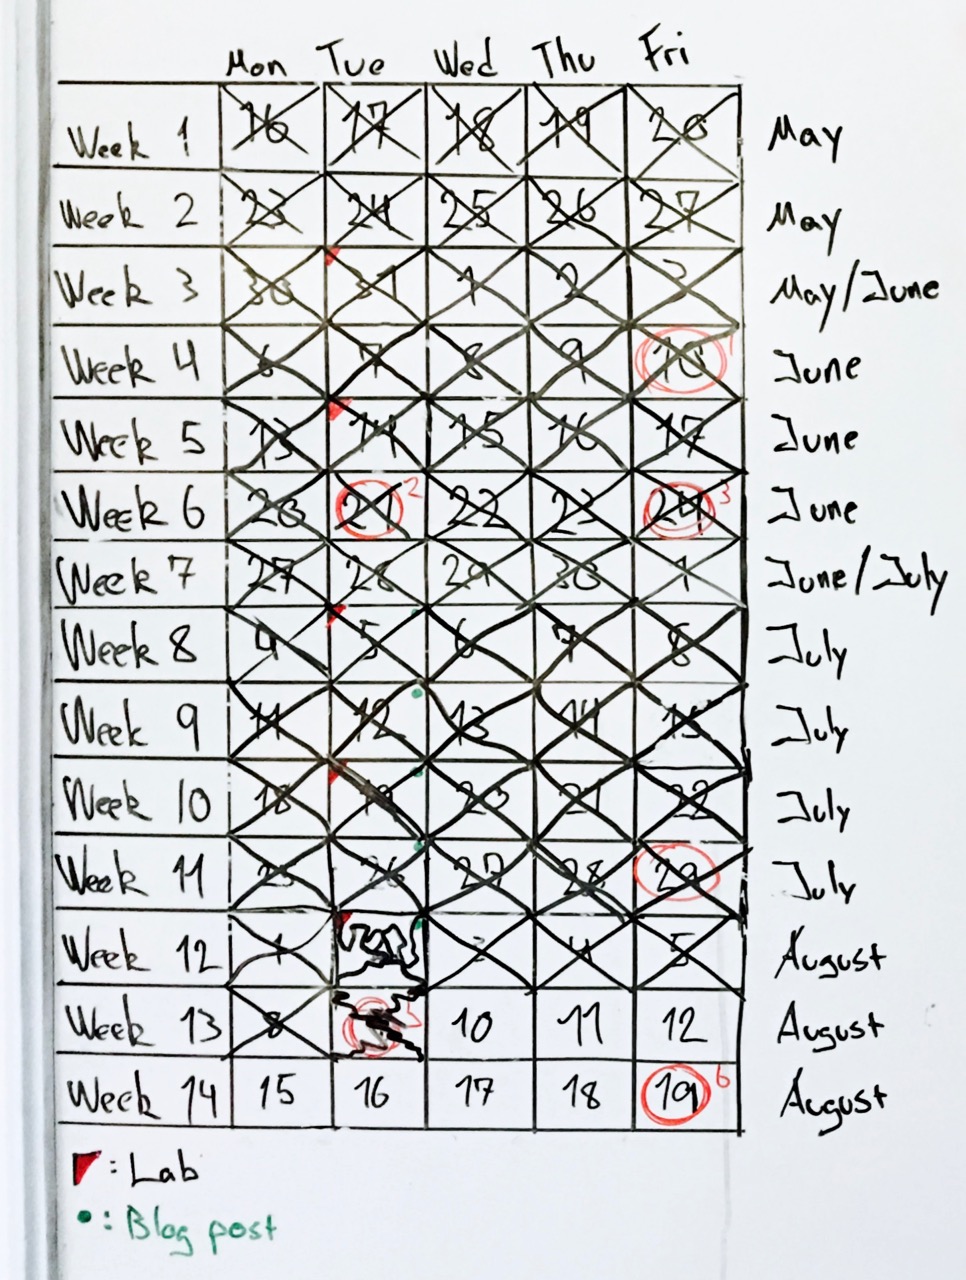 Mon Tue Wed Thu Fri
Week 1 16 17 18 19 20 May
Week 2 23 24 25 26 27 May
Week 3 30 31 1 2 3 May/June
Week 4 6 7 8 9 10 1 June
Week 5 13 14 15 16 17 June
Week 6 20 21 2 22 23 24 3 June
Week 7 27 28 29 30 1 June/July
Week 8 4 5 6 7 8 July
Week 9 11 12 13 14 15 July
Week 10 18 19 20 21 22 July
Week 11 25 26 27 28 29 July
Week 12 1 3 4 5 August
Week 13 8 10 11 12 August
Week 14 15 16 17 18 19 6 August
: Lab
: Blog post